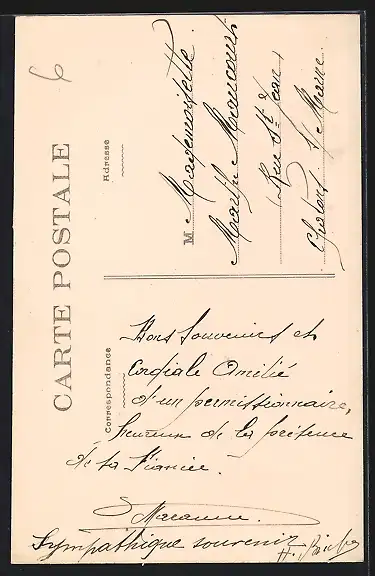 6
CARTE POSTALE
Correspondance
Bons souvenirs et
Cordiale Amitié
d'un permissionnaire,
heureux de la présence
de sa Fiancée.
Sympathique souvenir
Adresse
M Mademoiselle
Marthe Maucourt
Rue St Jean
Chalons s/ Marne